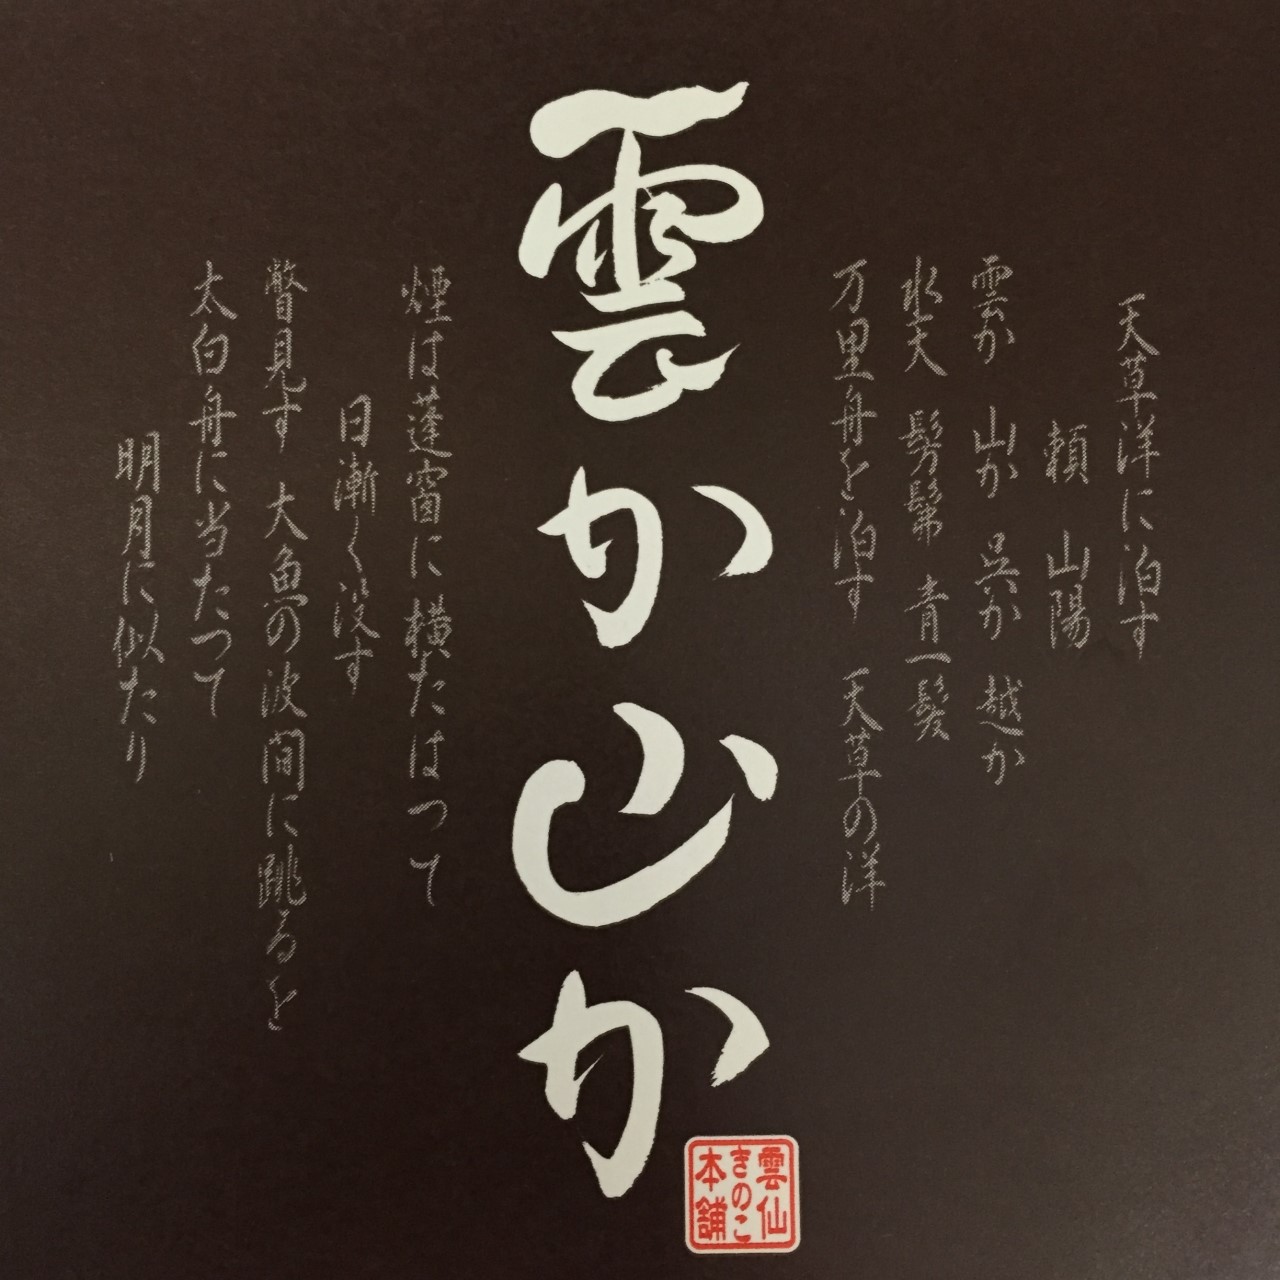 天草洋に泊す
頼 山陽
雲か 山か 呉か 越か
水天 髣髴 青一髪
万里舟を泊す 天草の洋
雲か山か
煙は蓬窗に横たはつて
日漸く没す
瞥見す 大魚の波間に跳るを
太白舟に当たつて
明月に似たり
雲仙
きのこ
本舗